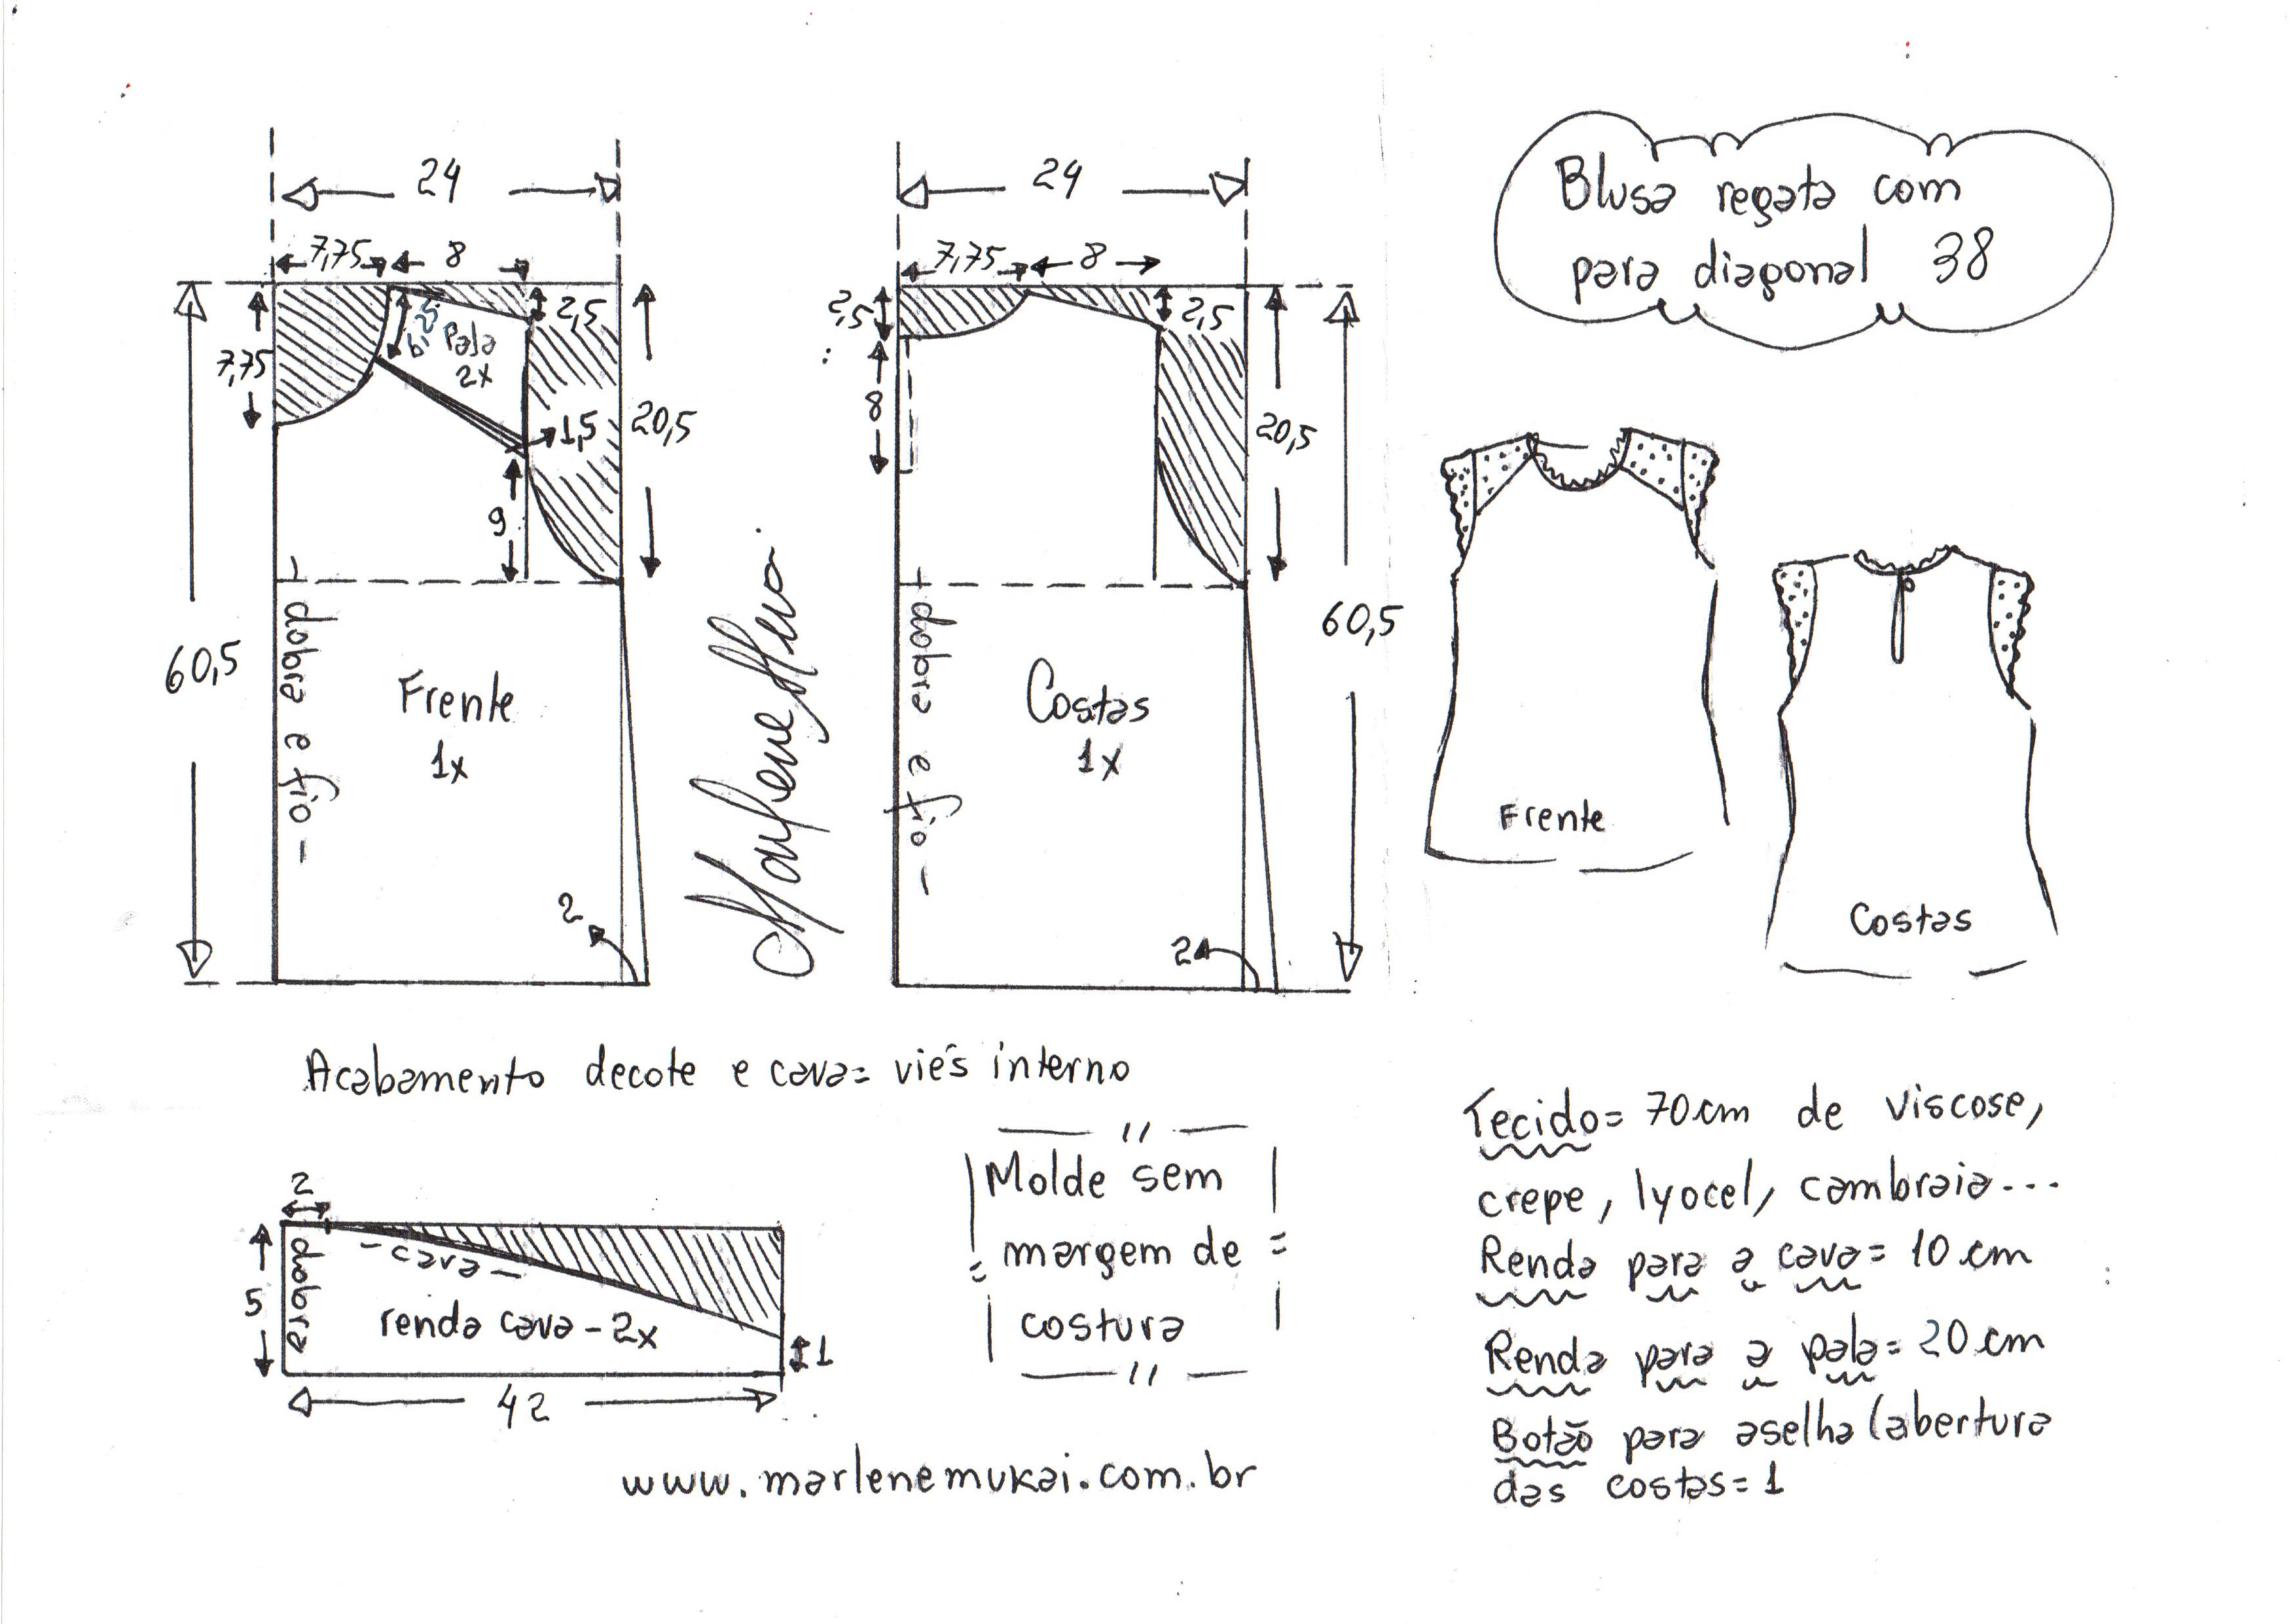 24
7,75
8
2,5
6,25
Pala
2x
7,75
1,5
20,5
9
60,5
dobra e fio
Frente
1x
2
24
7,75
8
2,5
2,5
8
20,5
60,5
dobra e fio
Costas
1x
2
Blusa regata com
para diagonal 38
Frente
Costas
Acabamento decote e cava= viés interno
2
5
dobra
- cava -
renda cava - 2x
1
42
Molde sem
margem de
costura
www.marlenemukai.com.br
Tecido= 70cm de viscose,
crepe, lyocel, cambraia...
Renda para a cava= 10cm
Renda para a pala= 20cm
Botão para aselha (abertura
das costas= 1